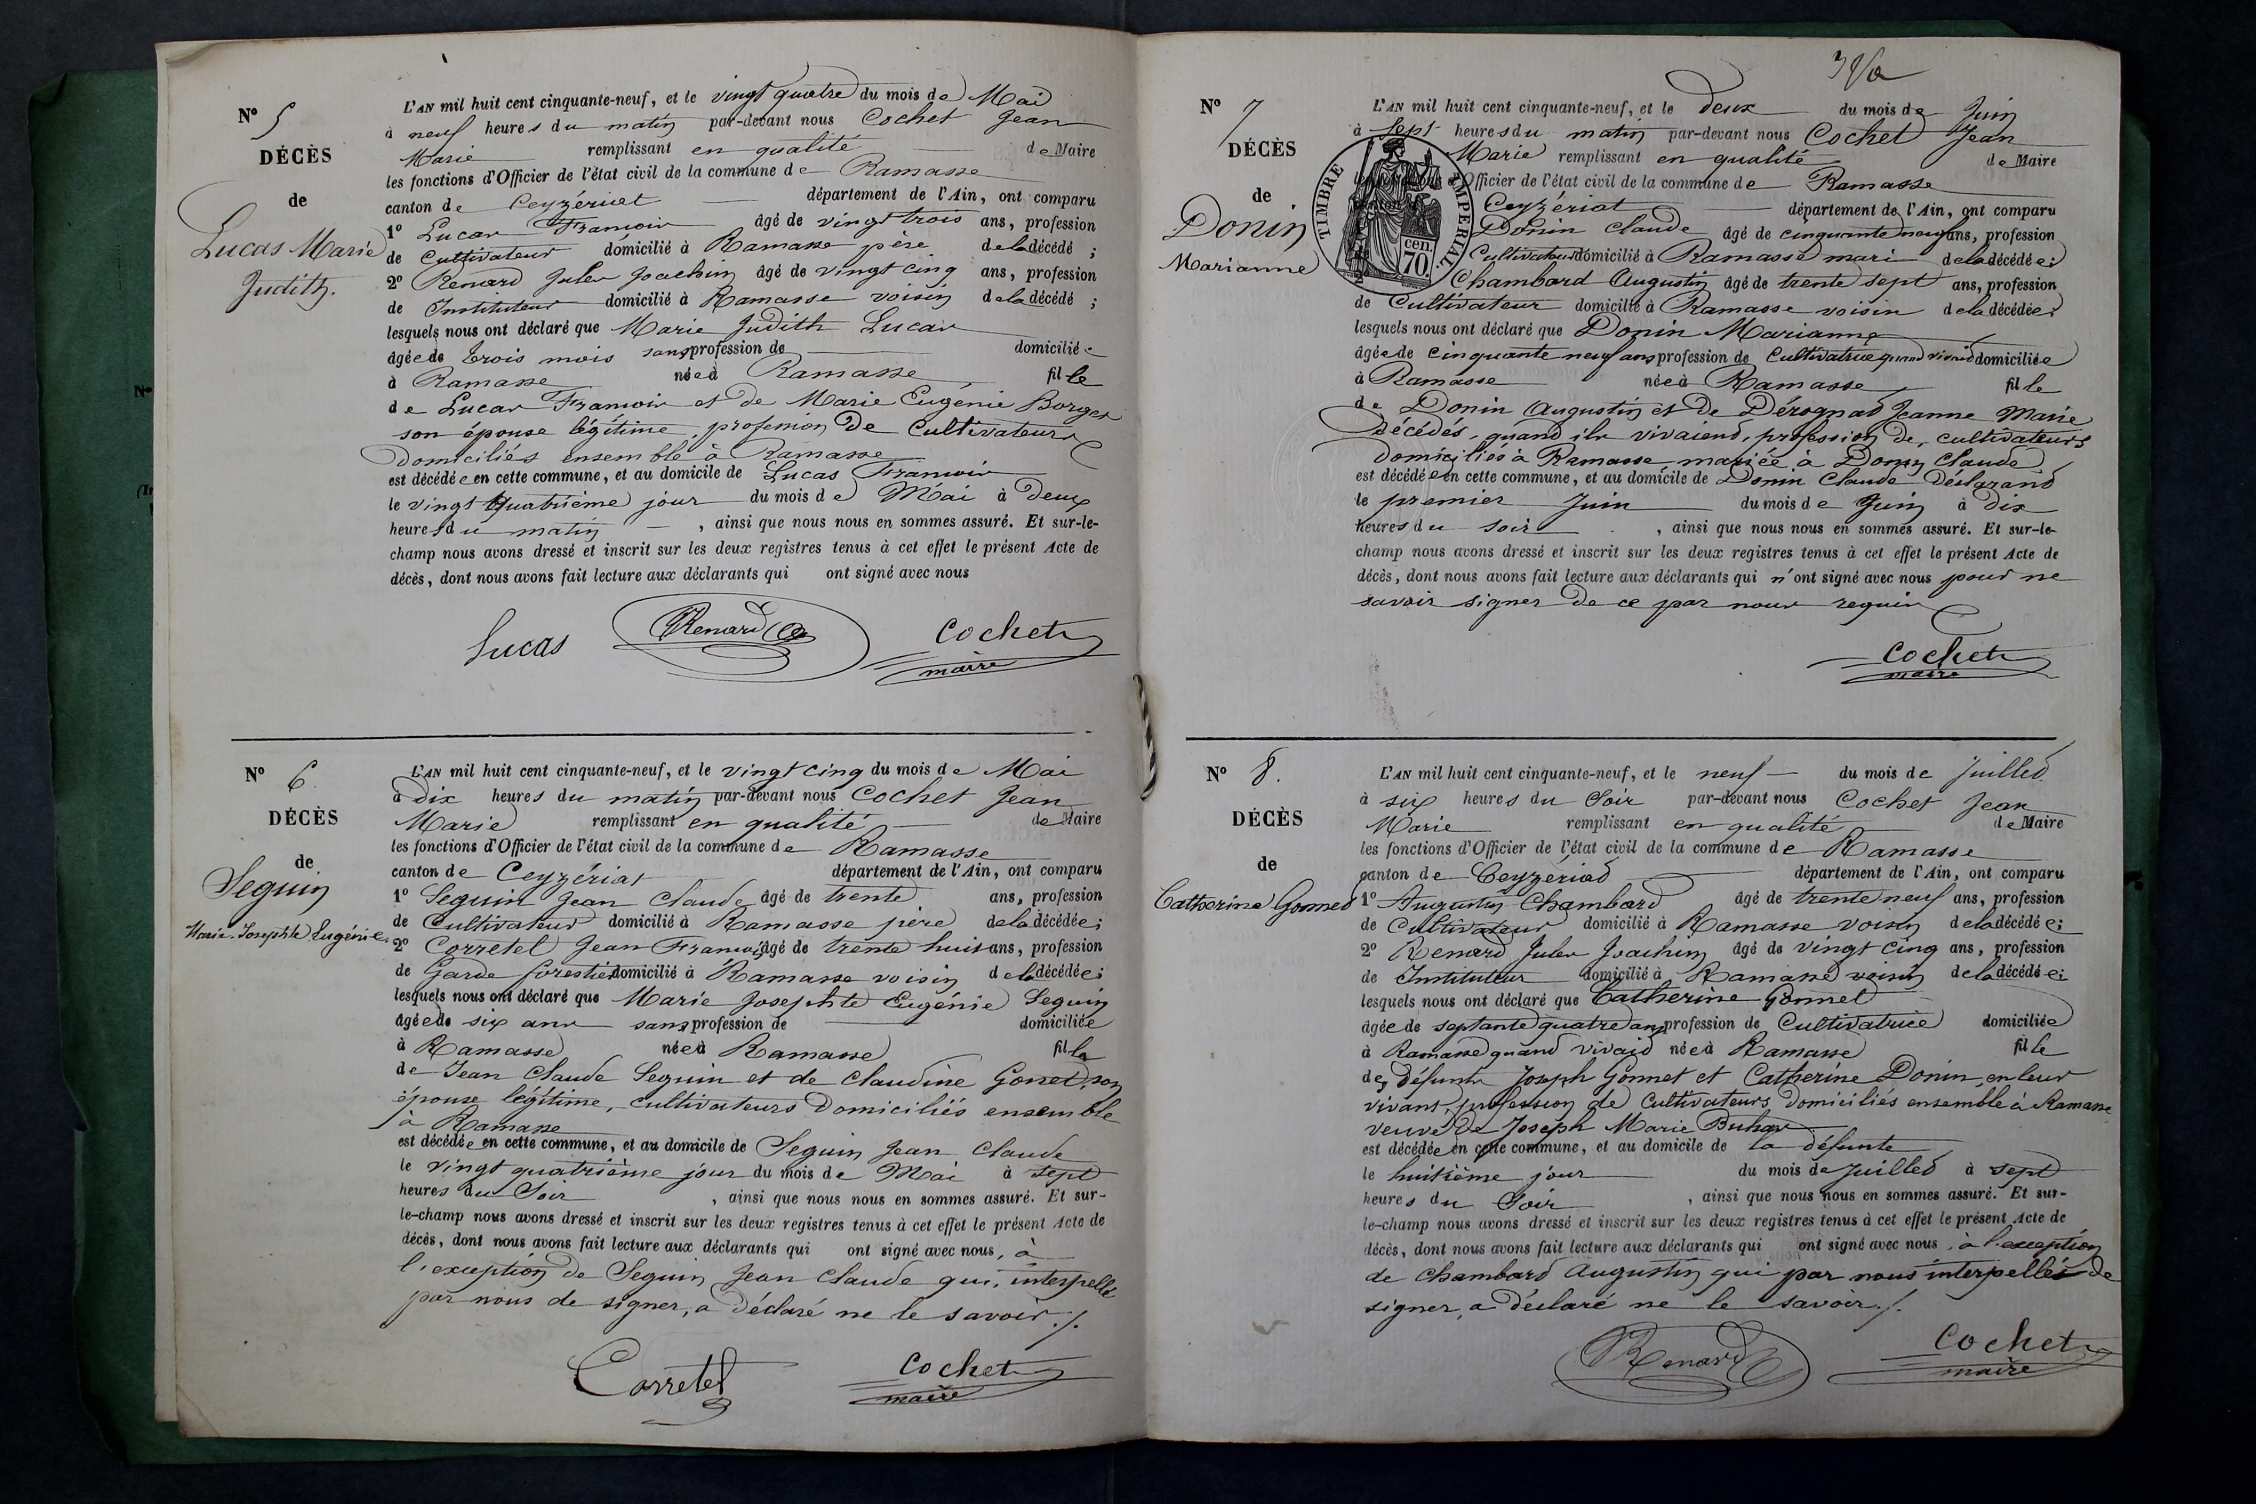 N° 5
DÉCÈS
de
Lucas Marie
Judith.
L'AN mil huit cent cinquante-neuf, et le vingt quatre du mois de Mai
à neuf heures du matin par-devant nous Cochet Jean
Marie remplissant en qualité de Maire
les fonctions d'Officier de l'état civil de la commune de Ramasse
canton de Ceyzériat département de l'Ain, ont comparu
1° Lucas François âgé de vingt trois ans, profession
de Cultivateur domicilié à Ramasse père de la décédé ;
2° Renard Jules Joachim âgé de vingt cinq ans, profession
de Instituteur domicilié à Ramasse voisin de la décédé ;
lesquels nous ont déclaré que Marie Judith Lucas
âgée de trois mois sans profession de domiciliée
à Ramasse née à Ramasse fille
de Lucas François et de Marie Eugénie Borges
son épouse légitime, profession de Cultivateurs
domiciliés ensemble à Ramasse
est décédée en cette commune, et au domicile de Lucas François
le vingt quatrième jour du mois de Mai à deux
heures du matin , ainsi que nous nous en sommes assuré. Et sur-le-
champ nous avons dressé et inscrit sur les deux registres tenus à cet effet le présent Acte de
décès, dont nous avons fait lecture aux déclarants qui ont signé avec nous
Lucas Renard Cochet
maire
N° 6.
DÉCÈS
de
Seguin
Marie Josephte Eugénie
L'AN mil huit cent cinquante-neuf, et le vingt cinq du mois de Mai
à dix heures du matin par-devant nous Cochet Jean
Marie remplissant en qualité de Maire
les fonctions d'Officier de l'état civil de la commune de Ramasse
canton de Ceyzériat département de l'Ain, ont comparu
1° Seguin Jean Claude âgé de trente ans, profession
de Cultivateur domicilié à Ramasse père de la décédée ;
2° Corretel Jean François âgé de trente huit ans, profession
de Garde forestier domicilié à Ramasse voisin de la décédée ;
lesquels nous ont déclaré que Marie Josephte Eugénie Seguin
âgée de six ans sans profession de domiciliée
à Ramasse née à Ramasse fille
de Jean Claude Seguin et de Claudine Gonet, son
épouse légitime, cultivateurs domiciliés ensemble
à Ramasse
est décédée en cette commune, et au domicile de Seguin Jean Claude
le vingt quatrième jour du mois de Mai à sept
heures du Soir , ainsi que nous nous en sommes assuré. Et sur-
le-champ nous avons dressé et inscrit sur les deux registres tenus à cet effet le présent Acte de
décès, dont nous avons fait lecture aux déclarants qui ont signé avec nous, à
l'exception de Seguin Jean Claude qui, interpellé
par nous de signer, a déclaré ne le savoir ./.
Corretel Cochet
maire
N° 7
DÉCÈS
de
Donin
Marianne
TIMBRE IMPERIAL.
70 cen.
L'AN mil huit cent cinquante-neuf, et le deux du mois de Juin
à Sept heures du matin par-devant nous Cochet Jean
Marie remplissant en qualité de Maire
Officier de l'état civil de la commune de Ramasse
Ceyzériat département de l'Ain, ont comparu
Donin Claude âgé de cinquante neuf ans, profession
Cultivateur domicilié à Ramasse mari de la décédée ;
Chambard Augustin âgé de trente sept ans, profession
de Cultivateur domicilié à Ramasse voisin de la décédée ;
lesquels nous ont déclaré que Donin Marianne
âgée de cinquante neuf ans profession de Cultivatrice quand vivait domiciliée
à Ramasse née à Ramasse fille
de Donin Augustin et de Dérognat Jeanne Marie
décédés, quand ils vivaient, profession de cultivateurs
domiciliés à Ramasse mariée à Donin Claude
est décédée en cette commune, et au domicile de Donin Claude déclarant
le premier Juin du mois de Juin à dix
heures du soir , ainsi que nous nous en sommes assuré. Et sur-le-
champ nous avons dressé et inscrit sur les deux registres tenus à cet effet le présent Acte de
décès, dont nous avons fait lecture aux déclarants qui n'ont signé avec nous pour ne
savoir signer de ce par nous requis
Cochet
maire
N° 8.
DÉCÈS
de
Catherine Gonnet
L'AN mil huit cent cinquante-neuf, et le neuf du mois de Juillet
à six heures du Soir par-devant nous Cochet Jean
Marie remplissant en qualité de Maire
les fonctions d'Officier de l'état civil de la commune de Ramasse
canton de Ceyzériat département de l'Ain, ont comparu
1° Augustin Chambard âgé de trente neuf ans, profession
de Cultivateur domicilié à Ramasse voisin de la décédée ;
2° Renard Jules Joachim âgé de vingt cinq ans, profession
de Instituteur domicilié à Ramasse voisin de la décédée ;
lesquels nous ont déclaré que Catherine Gonnet
âgée de septante quatre ans profession de Cultivatrice domiciliée
à Ramasse quand vivait née à Ramasse fille
des défunts Joseph Gonnet et Catherine Donin, en leur
vivant, profession de Cultivateurs domiciliés ensemble à Ramasse
veuve de Joseph Marie Buhas
est décédée en cette commune, et au domicile de la défunte
le huitième jour du mois de Juillet à sept
heures du Soir , ainsi que nous nous en sommes assuré. Et sur-
le-champ nous avons dressé et inscrit sur les deux registres tenus à cet effet le présent Acte de
décès, dont nous avons fait lecture aux déclarants qui ont signé avec nous, à l'exception
de Chambard Augustin qui par nous interpellé de
signer, a déclaré ne le savoir ./.
Renard Cochet
maire